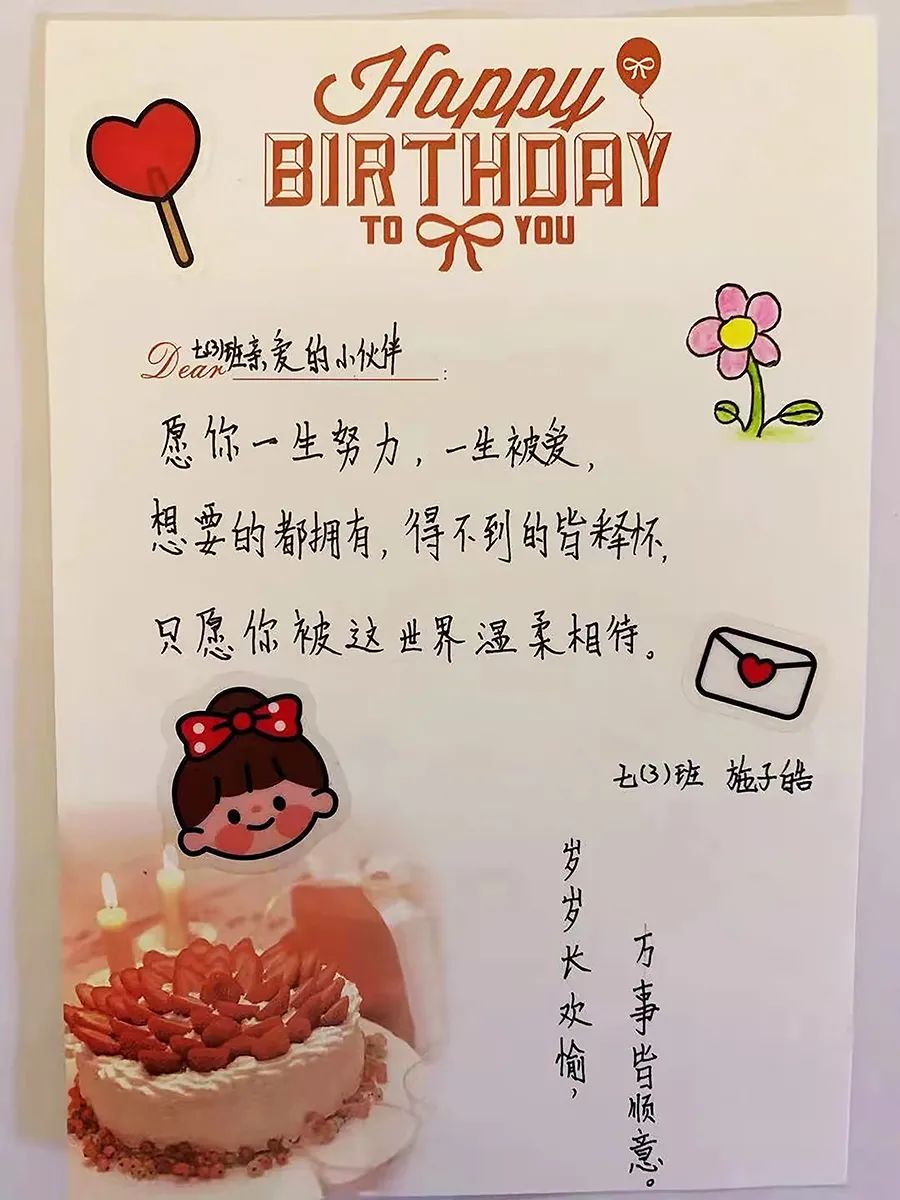 Happy
BIRTHDAY
TO YOU
Dear 七(3)班亲爱的小伙伴:
愿你一生努力，一生被爱，
想要的都拥有，得不到的皆释怀，
只愿你被这世界温柔相待。
七(3)班 施子皓
岁岁长欢愉，
万事皆顺意。